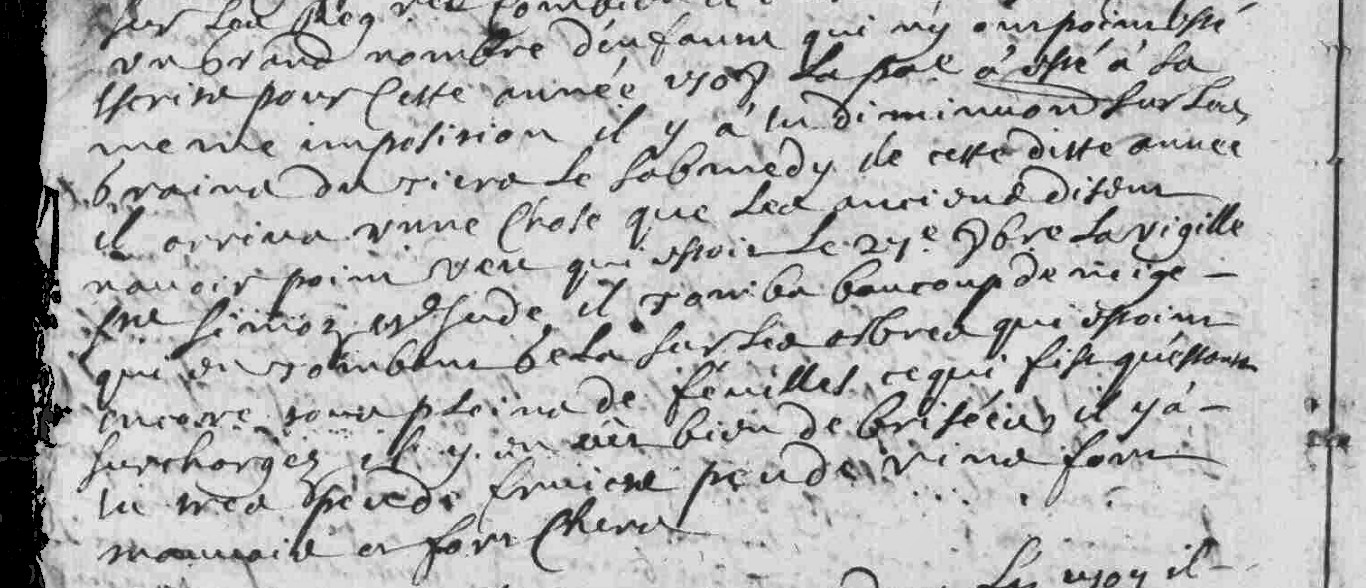 sur les
un grand nombre d'enfanns qui ny ont point esté
escrits pour cette année la paé a esté á la
meme imposision il y a eu diminuon sur les
grains du tiers le sabmedy de cette ditte année
il arriva unne chose que les anciens disent
navoir point veu qui estoit le 27e 8bre la vigille
St Simon et Jude il tomba baucoup de neige
qui en tombant gela sur les arbres qui estoint
encorre tous pleins de féuilles ce qui fist qu'estants
surchargez il y en eut bien de briséés il y á
eu tres peu de fruicts peu de vins fort
mauvais et fort chers
il